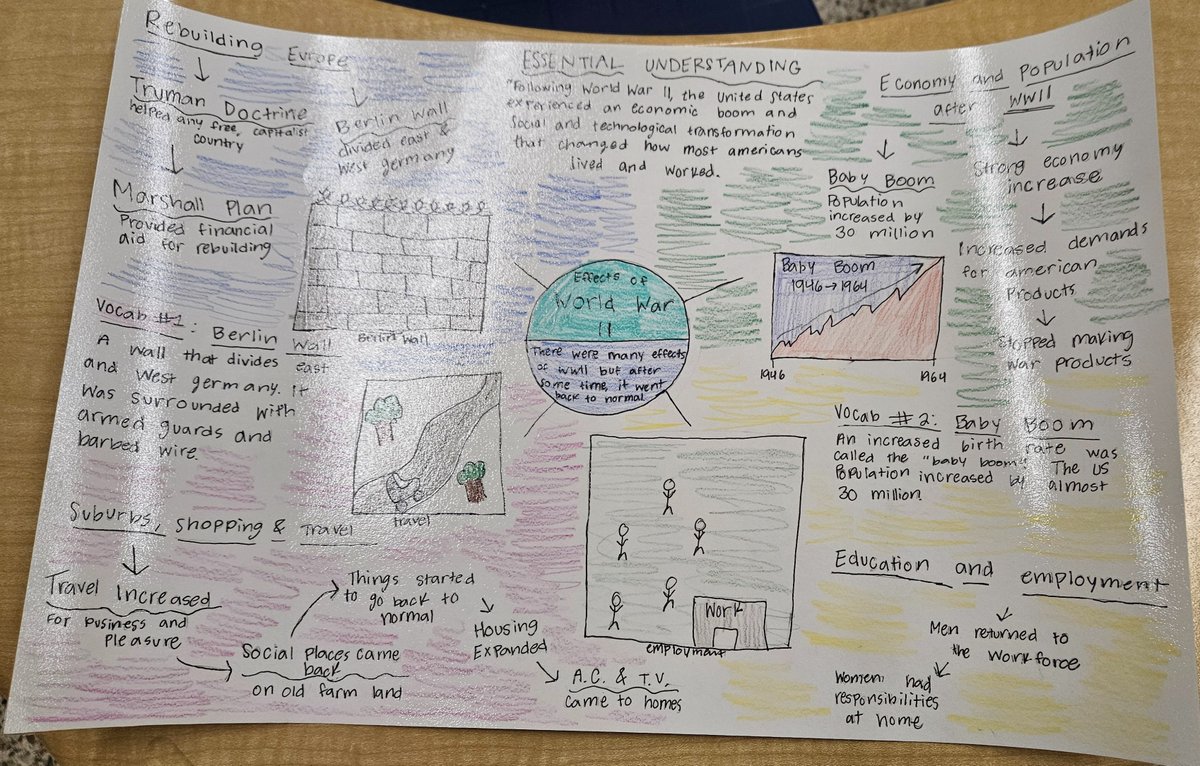 Rebuilding Europe
Truman Doctrine
help any free, capitalist
country
Marshall Plan
Provided financial
aid for rebuilding
Berlin Wall
divided east &
west germany
Berlin Wall
Vocab #1: Berlin Wall
A wall that divides east
and west germany. it
was surrounded with
armed guards and
barbed wire
travel
ESSENTIAL UNDERSTANDING
"Following World War II, the United States
experienced an economic boom and
social and technological transformation
that changed how most americans
lived and worked.
Effects of
World War
II
There were many effects
of WWII but after
some time, it went
back to normal
Economy and Population
after WWII
Baby Boom
Population
increased by
30 million
Strong economy
increase
Increased demands
for american
Products
Stopped making
war products
Baby Boom
1946→1964
1946
1964
Vocab #2: Baby Boom
An increased birth rate was
called the "baby boom". The US
Population increased by almost
30 million.
Suburbs, Shopping & Travel
Travel Increased
For business and
Pleasure
Social Places came
back
on old farm land
Things started
to go back to
normal
Housing
Expanded
A.C. & T.V.
came to homes
Work
employment
Education and employment
Men returned to
the workforce
Women had
responsibilities
at home